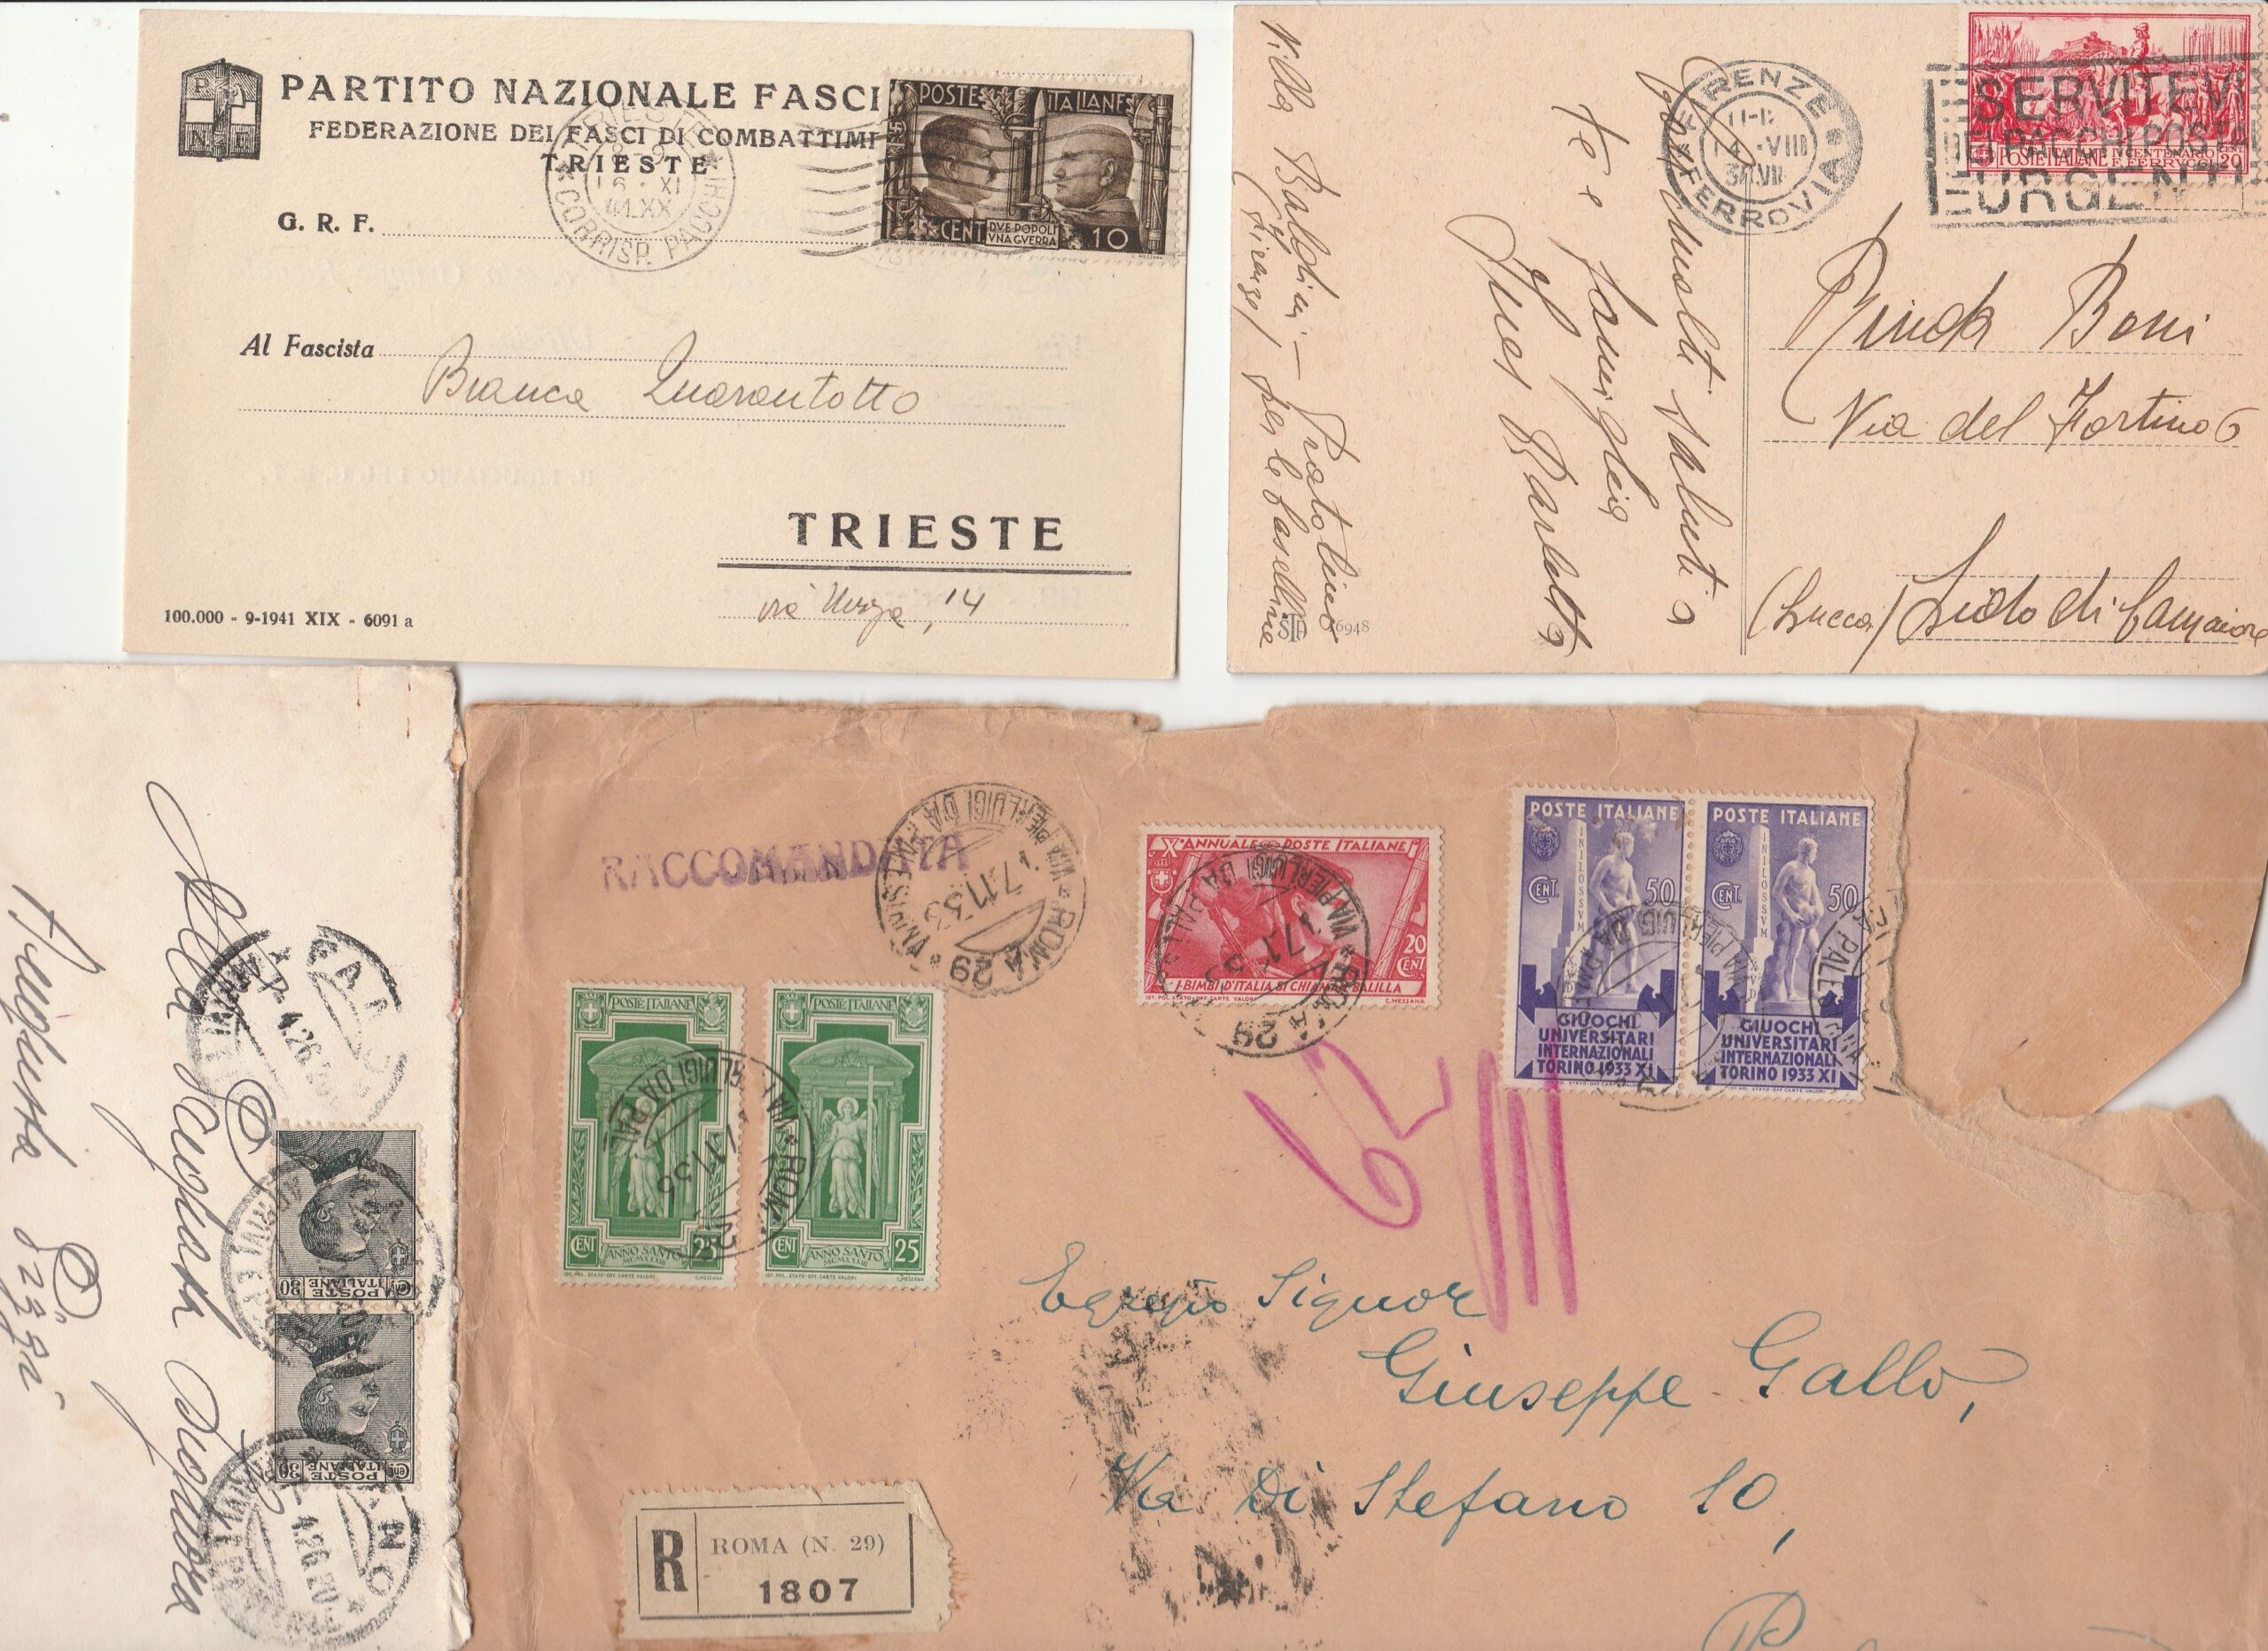 PARTITO NAZIONALE FASCI
FEDERAZIONE DEI FASCI DI COMBATTIMI
TRIESTE
CORRISP. PACCHI
POSTE ITALIANE
CENT DVE POPOLI VNA GVERRA 10
G. R. F.
Al Fascista
Bianca Quarantotto
TRIESTE
14
100.000 - 9-1941 XIX - 6091 a
FIRENZE
FERROVIA
SERVITEVI
DEI PACCHI POSTA
URGENTI
POSTE ITALIANE IV CENTENARIO F. FERRUCCI 20
molti saluti a
te e famiglia
Villa Baldini - Pratolino
(Firenze) per le Caselline
6948
Boni
Via del Fortino 6
(Lucca) Lido di Camaiore
RACCOMANDATA
ROMA 29
VIA PIERLUIGI DA PALESTRINA
7.11.33
X° ANNUALE POSTE ITALIANE
20 CENT
I BIMBI D'ITALIA SI CHIAMAN BALILLA
IST. POL. STATO-OFF. CARTE VALORI C. MEZZANA
POSTE ITALIANE
CENT. 50
GIUOCHI
UNIVERSITARI
INTERNAZIONALI
TORINO 1933 XI
POSTE ITALIANE
CENT. 50
GIUOCHI
UNIVERSITARI
INTERNAZIONALI
TORINO 1933 XI
POSTE ITALIANE
CENT 25
ANNO SANTO
MCMXXXIII
POSTE ITALIANE
CENT 25
ANNO SANTO
MCMXXXIII
Egregio Signor
Giuseppe Gallo,
Via Di Stefano 10,
R ROMA (N. 29)
1807
Alla
Augusta
POSTE ITALIANE
30
POSTE ITALIANE
30